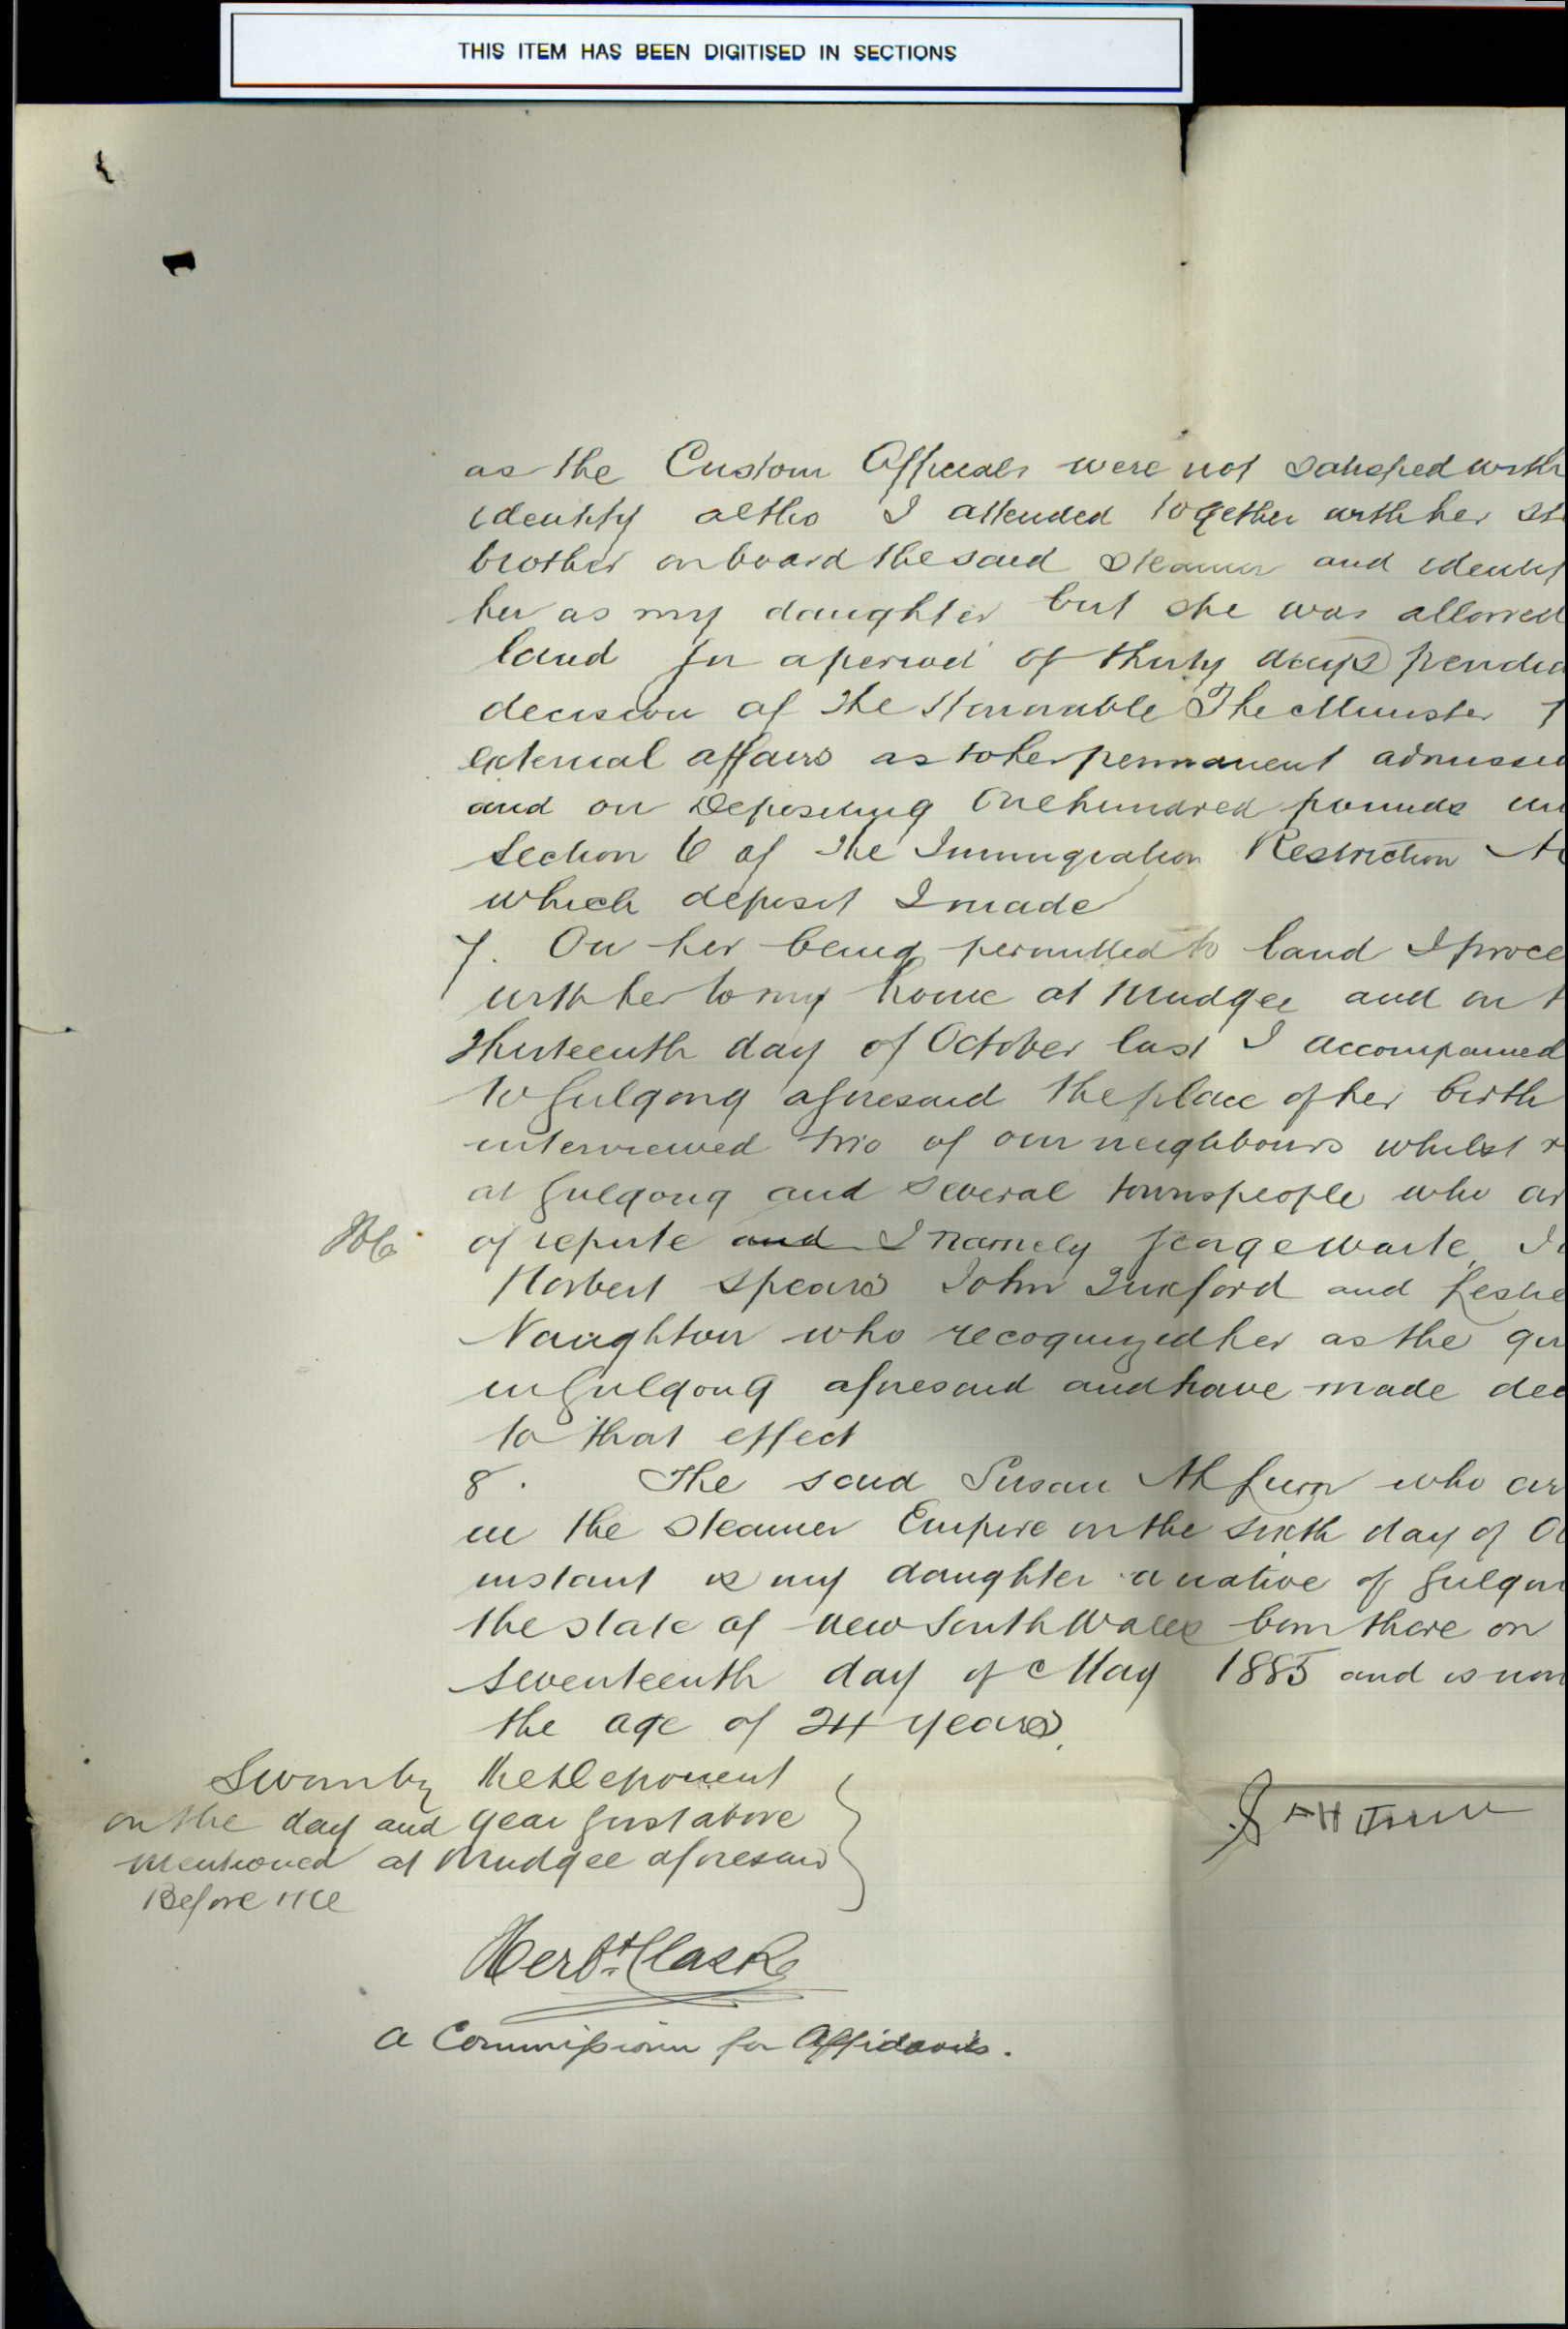 THIS ITEM HAS BEEN DIGITISED IN SECTIONS
as the Custom Officials were not satisfied with
identify altho I attended together with her st
brother on board the said Steamer and identif
her as my daughter but she was allowed
land for a period of thirty days pendin
decision of the Honorable The Minister f
external affairs as to her permanent admissio
and on Depositing One hundred pounds un
Section 6 of the Immigration Restriction Ac
which deposit I made
7. On her being permitted to land I proce
with her to my home at Mudgee and on t
thirteenth day of October last I accompanied
to Gulgong aforesaid the place of her birth
interviewed two of our neighbours whilst r
at Gulgong and several townspeople who ar
HC of repute and I namely George Warte
Norbert Spears John and Leslie
Naughton who recognized her as the gir
in Gulgong aforesaid and have made dec
to that effect
8. The said Susan Ah Lum who ar
in the steamer Empire on the sixth day of Oc
instant is my daughter a native of Gulgon
the state of New South Wales born there on
seventeenth day of May 1885 and is now
the age of 24 years.
Sworn by the Deponent
on the day and year first above
mentioned at Mudgee aforesaid
Before me
Herbt. Clarke
A Commissioner for Affidavits.